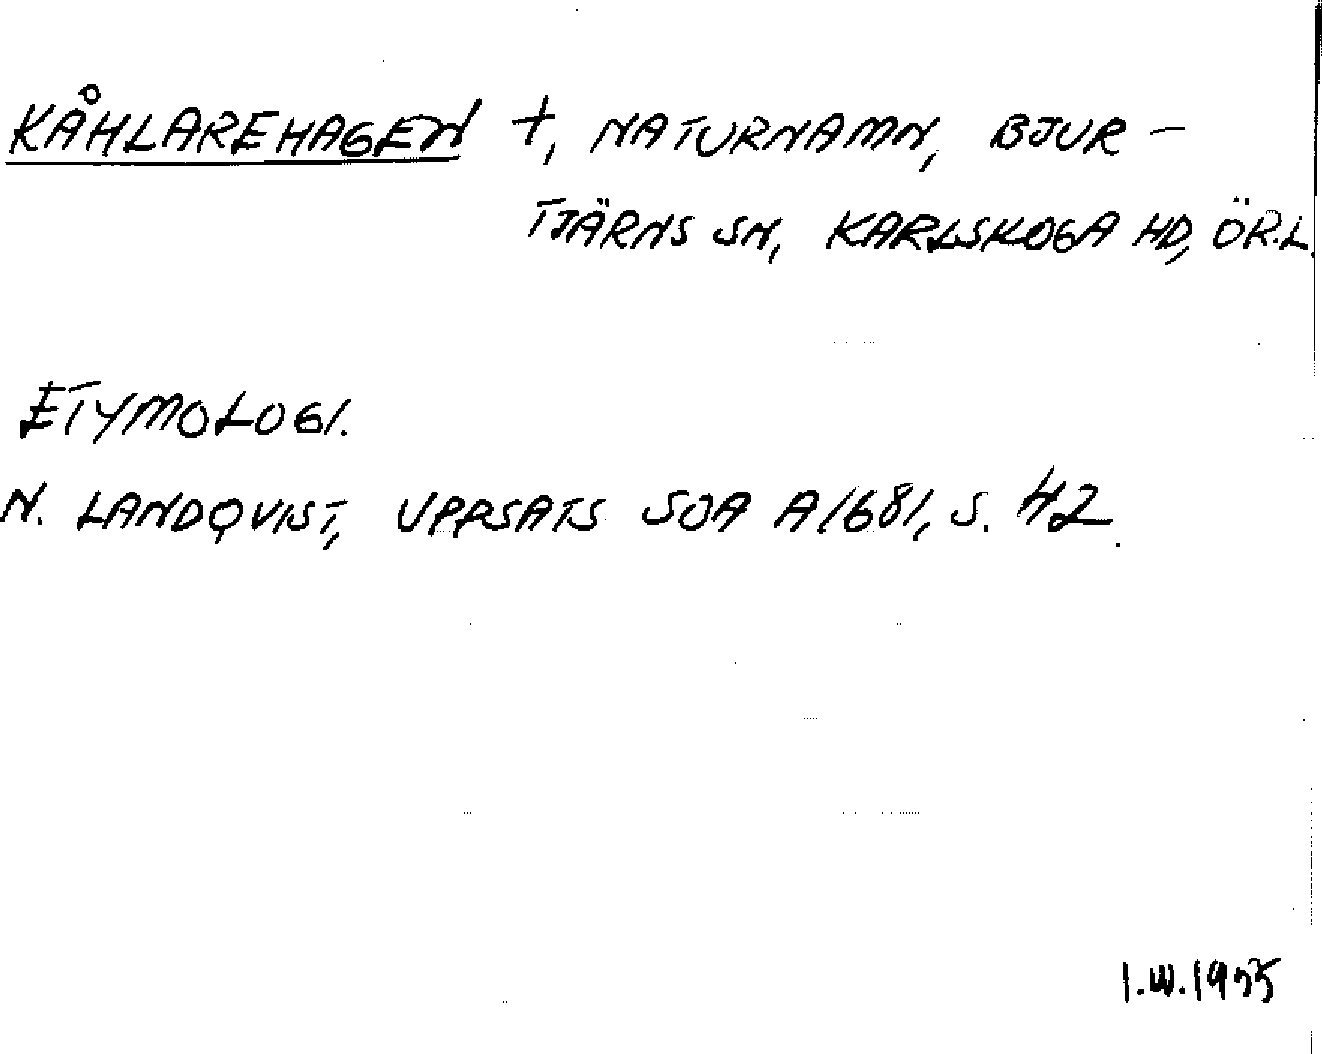 KÅHLAREHAGEN +, NATURNAMN, BJUR-
TJÄRNS SN, KARLSKOGA HD, ÖR.L.
ETYMOLOGI.
N. LANDQVIST, UPPSATS SOA A/681, S. 42.
I.W. 1955